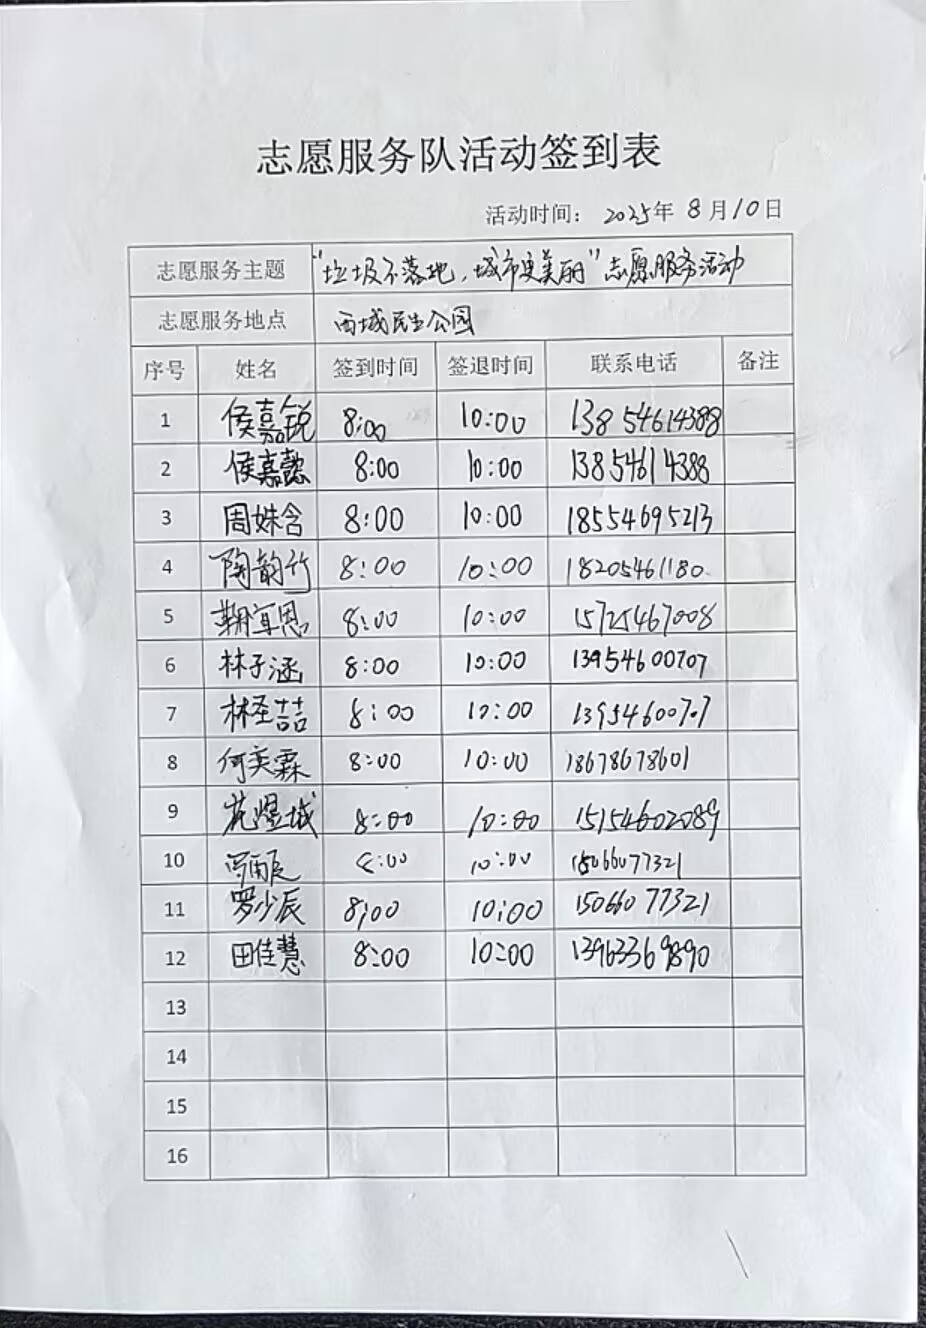 志愿服务队活动签到表
活动时间： 2025年 8月10日
志愿服务主题 “垃圾不落地，城市更美丽”志愿服务活动
志愿服务地点 西城民生公园
序号 姓名 签到时间 签退时间 联系电话 备注
1 侯嘉锐 8:00 10:00 13854614388
2 侯嘉懿 8:00 10:00 13854614388
3 周姝含 8:00 10:00 18554695213
4 陶韵竹 8:00 10:00 18205461180
5 8:00 10:00 15725467008
6 林子涵 8:00 10:00 13954600707
7 林圣喆 8:00 10:00 13954600707
8 何奕霖 8:00 10:00 18678678601
9 苑煜城 8:00 10:00 15154602089
10 8:00 10:00 15066077321
11 罗少辰 8:00 10:00 15066077321
12 田佳慧 8:00 10:00 13963369890
13
14
15
16